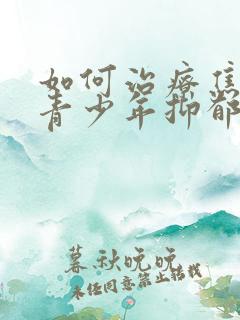 如何治疗焦
青少年抑郁
暮秋晚晚
未经同意禁止转载